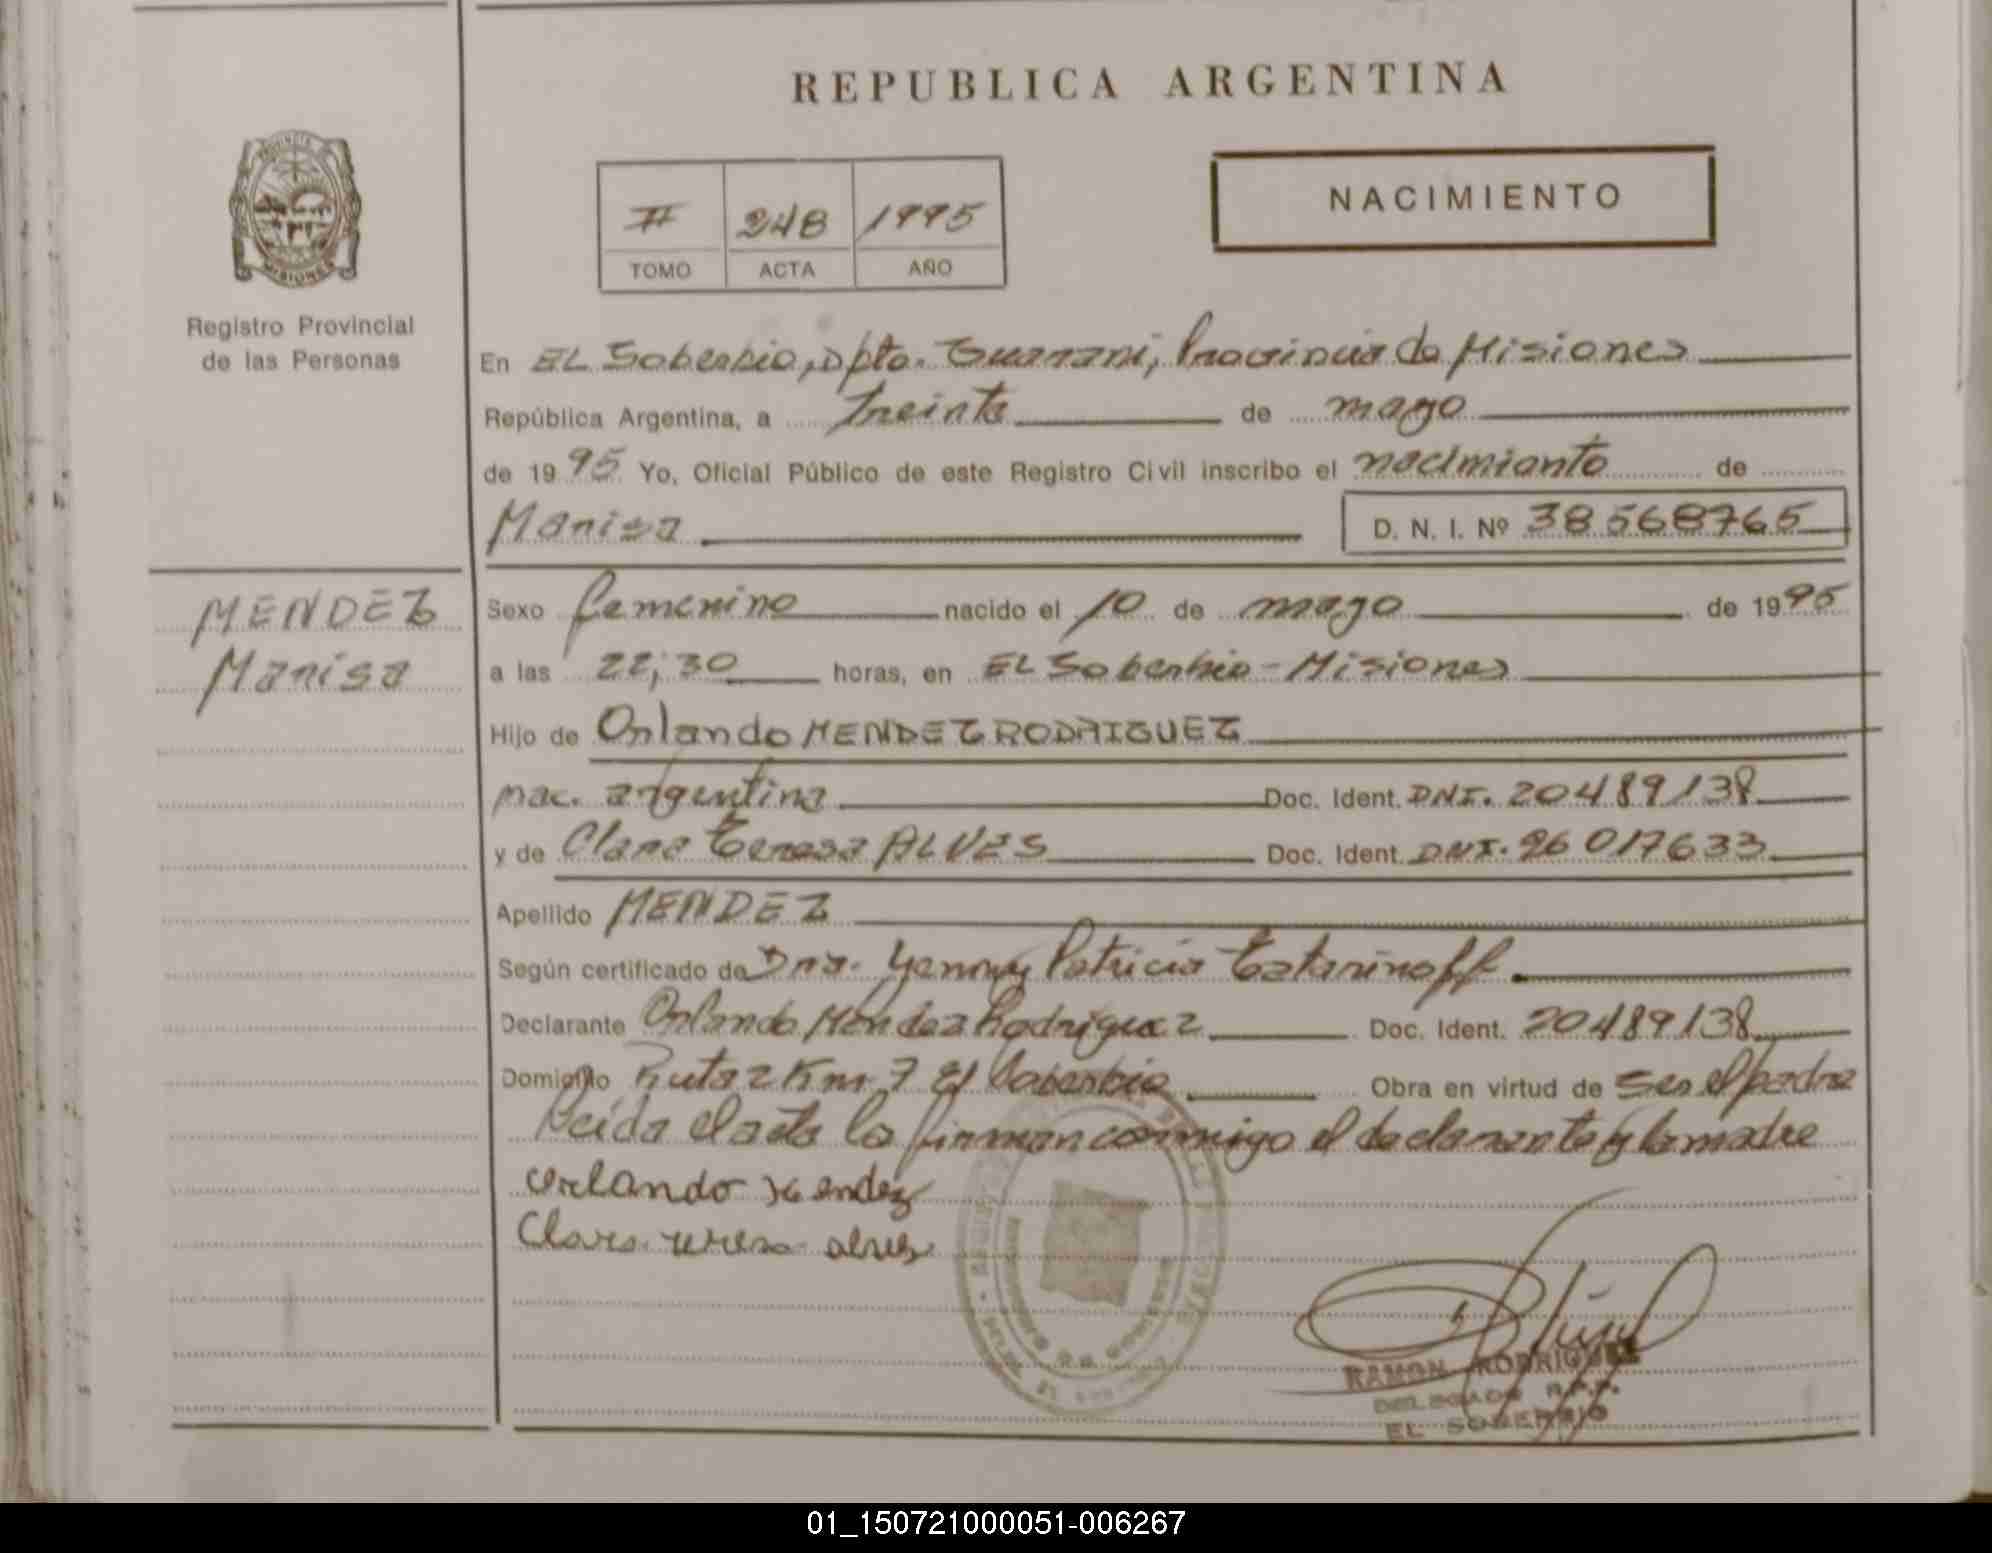 REPUBLICA ARGENTINA
NACIMIENTO
II 248 1995
TOMO ACTA AÑO
PROVINCIA DE
MISIONES
Registro Provincial
de las Personas
En EL Soberbio, Dpto. Guarani, Provincia de Misiones
República Argentina, a Treinta de mayo
de 1995 Yo, Oficial Público de este Registro Civil inscribo el nacimiento de
Marisa D. N. I. Nº 38568765
MENDEZ
Marisa
Sexo femenino nacido el 10 de mayo de 1995
a las 22;30 horas, en EL Soberbio - Misiones
Hijo de Orlando MENDEZ RODRIGUEZ
nac. argentina Doc. Ident. DNI. 20489138
y de Clara Teresa ALVES Doc. Ident. DNI. 26017633
Apellido MENDEZ
Según certificado de Dra. Yenny Patricia Tatarinoff
Declarante Orlando Mendez Rodriguez Doc. Ident. 20489138
Domicilio Ruta 2 Km 7 El Soberbio Obra en virtud de ser el padre
Leida el acta la firman conmigo el declarante y la madre
Orlando Mendez
Clara teresa alves
RAMON RODRIGUEZ
DELEGADO R.P.P.
EL SOBERBIO
01_150721000051-006267